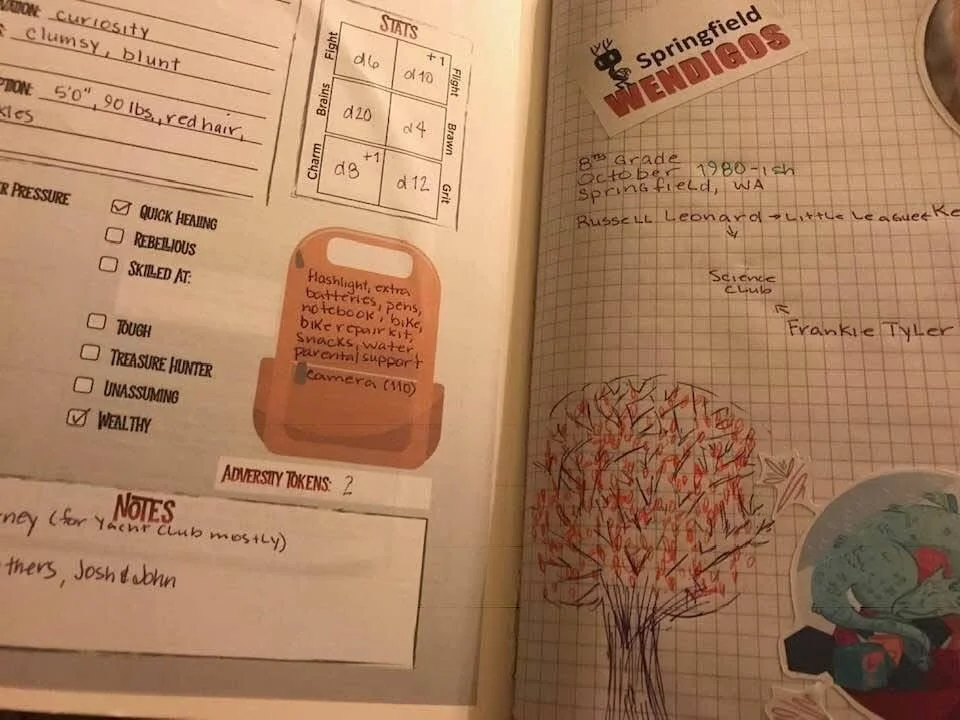 curiosity
clumsy, blunt
5'0", 90 lbs, red hair,
STATS
Fight
d6
+1
d10
Flight
Brains
d20
d4
Brawn
Charm
d8 +1
d12
Grit
PRESSURE
QUICK HEALING
REBELLIOUS
SKILLED AT:
TOUGH
TREASURE HUNTER
UNASSUMING
WEALTHY
flashlight, extra
batteries, pens,
notebook, bike,
bike repair kit,
snacks, water
parental support
camera (110)
ADVERSITY TOKENS: 2
NOTES
(for Yacht Club mostly)
Josh & John
Springfield
WENDIGOS
8th Grade
October 1980-ish
Springfield, WA
Russell Leonard → Little League
Science
Club
Frankie Tyler